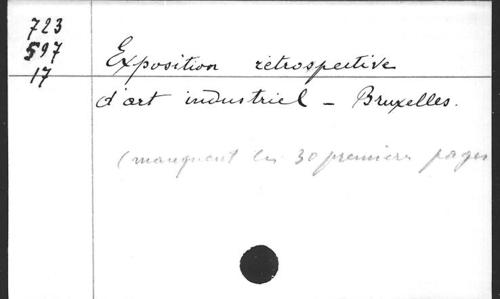 723
597
17
Exposition rétrospective
d'art industriel - Bruxelles.
(manquent les 30 premières pages